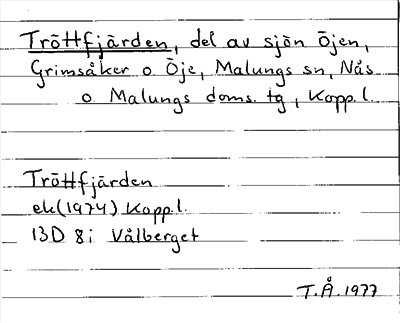 Tröttfjärden, del av sjön Öjen,
Grimsåker o. Öje, Malungs sn, Nås
o. Malungs doms. tg, Kopp.l.
Tröttfjärden
ek(1974) Kopp.l.
13D 8i Vålberget
T.Å.1977